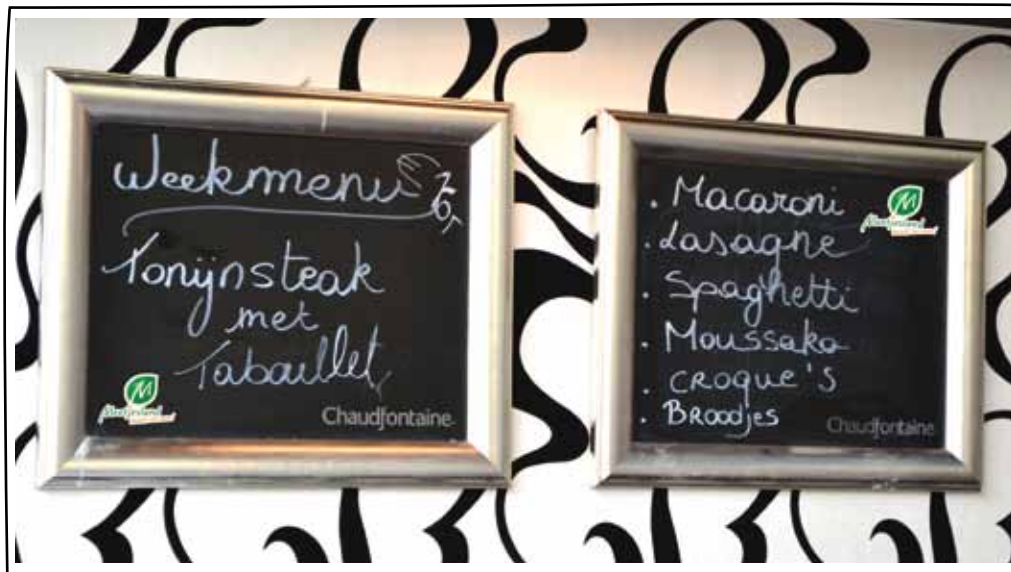 Weekmenu
Tonijnsteak
met
Tabaullet
Chaudfontaine
. Macaroni
. Lasagne
. Spaghetti
. Moussaka
. CROQUE'S
. BROODjes
Meetjesland
Chaudfontaine